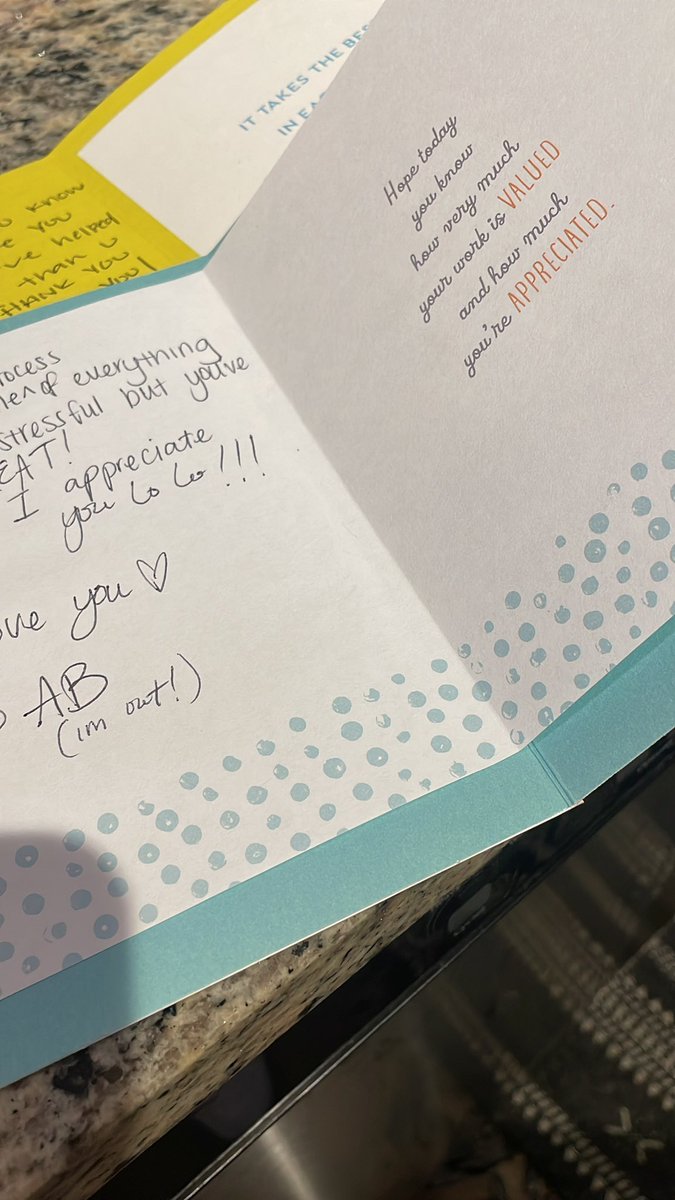 IT TAKES THE BES
IN EA
know
you
ve helped
than u
THANK YOU
YOU!
Hope today
you know
how very much
your work is VALUED
and how much
you're APPRECIATED.
rocess
of everything
stressful but you've
EAT!
I appreciate
you Lo Lo!!!
ove you ♡
AB
(im out!)